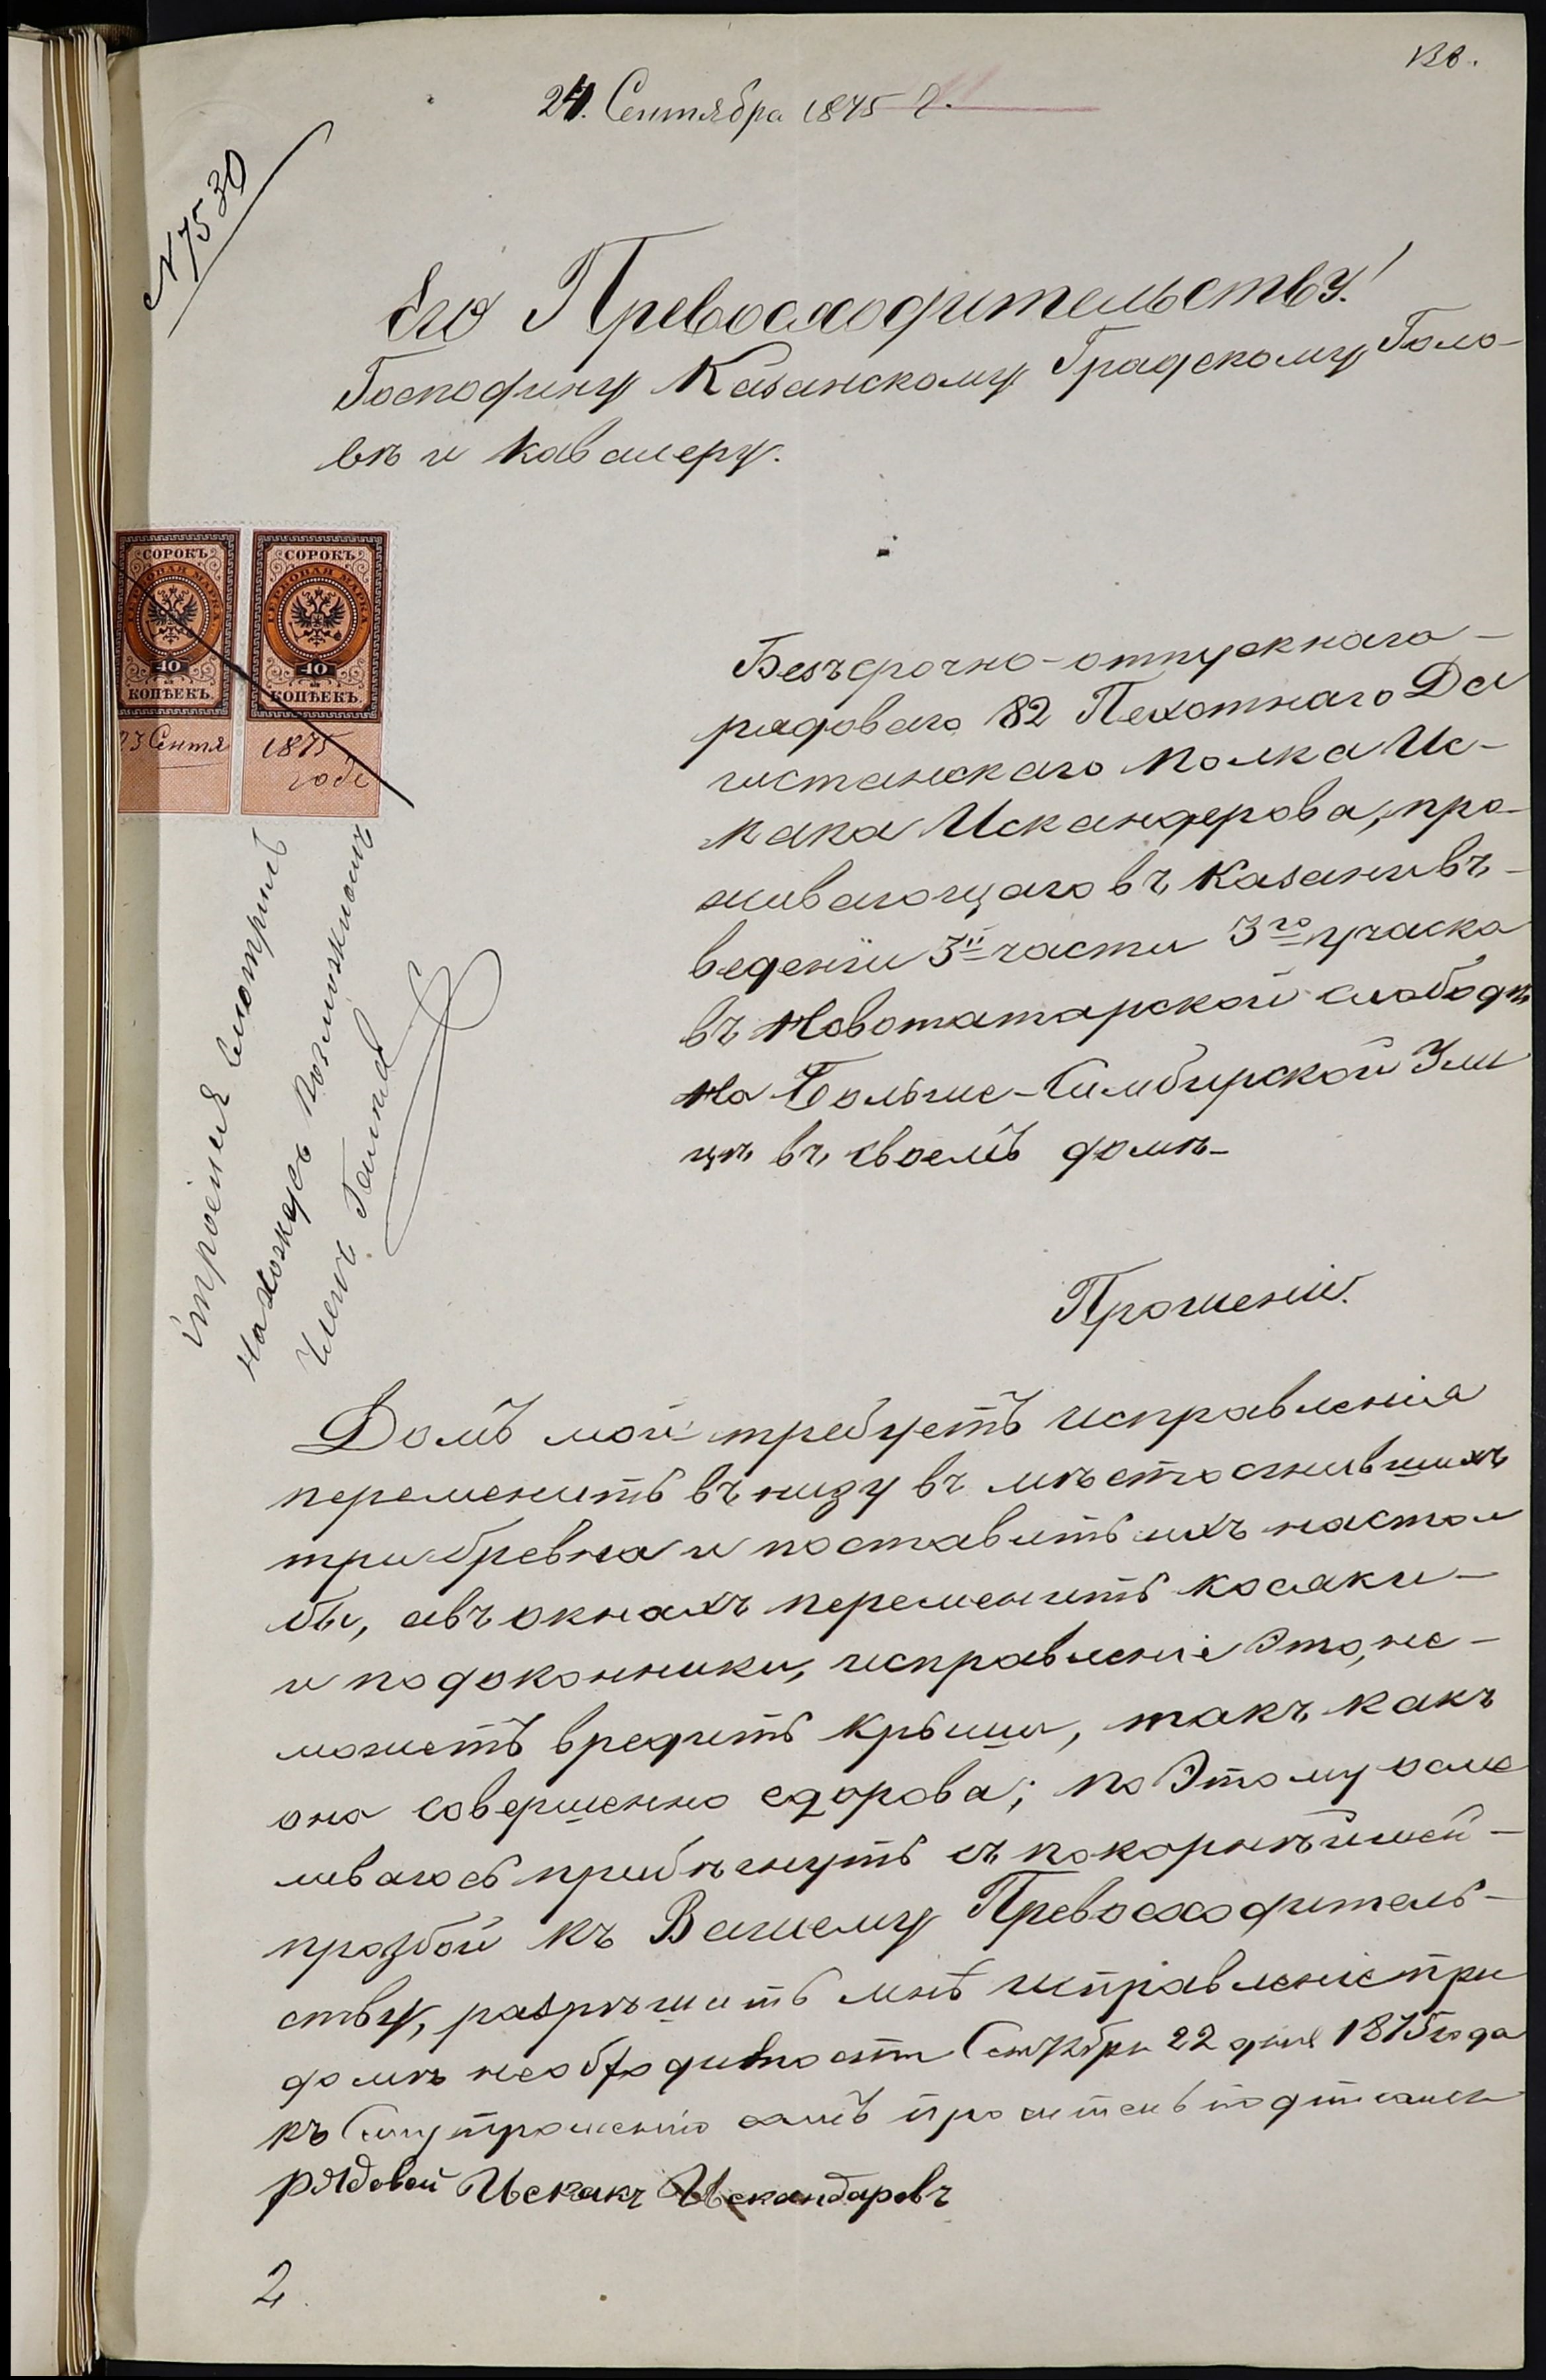 130.
24. Сентября 1875 г.
N 7530
Его Превосходительству!
Господину Казанскому Градскому Голо-
вѣ и Кавалеру.
СОРОКЪ
ГЕРБОВАЯ МАРКА
40
КОПѢЕКЪ.
23 Сентя
СОРОКЪ
ГЕРБОВАЯ МАРКА
40
КОПѢЕКЪ.
1875
года
Безъсрочно-отпускнаго-
рядоваго 82 Пехотнаго Да
гистанскаго полка Ис-
кака Искандерова, про-
живающаго въ Казани въ-
ведении 3й части 3го учаска
въ Новотатарской слободѣ
на Больше-Симбирской Ули
цѣ въ своемъ домѣ-
строенія смотрилъ
нахожусь возможнымъ
Членъ
Прошеніе.
Домъ мой требуетъ исправленія
переменить въ низу въ мѣсто сгнившихъ
три бревна и поставить ихъ настол
бы, авъ окнахъ переменить косяки-
и подоконники, исправленіе Это, не-
можетъ вредить крыши, такъ какъ
она совершенно здорова; по Этому осме
ливаюсь прибѣгнуть съ покорнѣйшей-
прозбой къ Вашему Превосходитель-
ству, разрѣшить мнѣ исправленіе при
домѣ необходимости Сентября 22 дня 1875 года
къ Сему прошенію самъ проситель подписался
рядовой Искакъ Искандаровъ
2